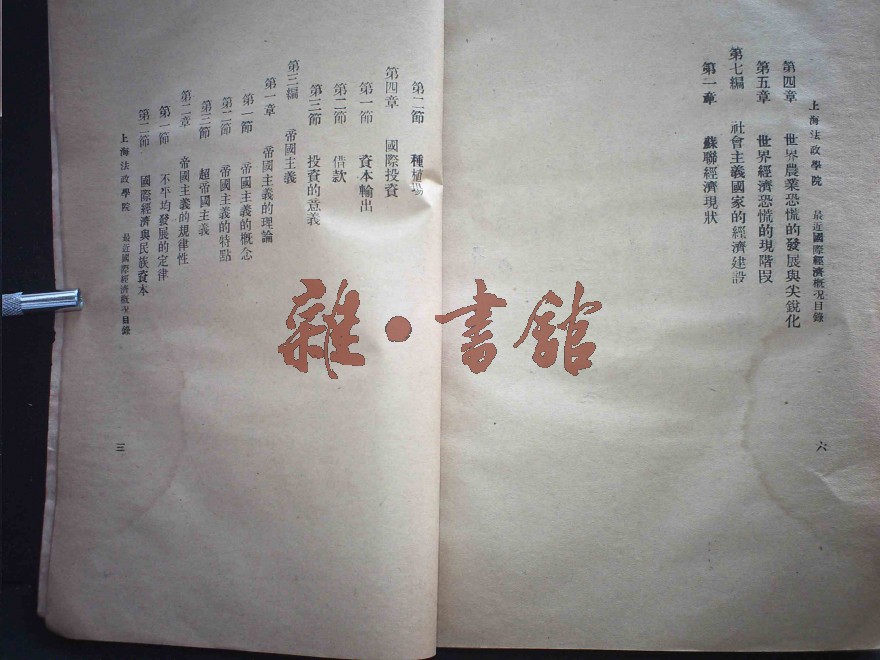 上海法政學院 最近國際經濟概況目錄 六
第四章 世界農業恐慌的發展與尖銳化
第五章 世界經濟恐慌的現階段
第七編 社會主義國家的經濟建設
第一章 蘇聯經濟現狀
第二節 種植場
第四章 國際投資
第一節 資本輸出
第二節 借款
第三節 投資的意義
第三編 帝國主義
第一章 帝國主義的理論
第一節 帝國主義的概念
第二節 帝國主義的特點
第三節 超帝國主義
第二章 帝國主義的規律性
第一節 不平均發展的定律
第二節 國際經濟與民族資本
上海法政學院 最近國際經濟概況目錄 三
雜·書館